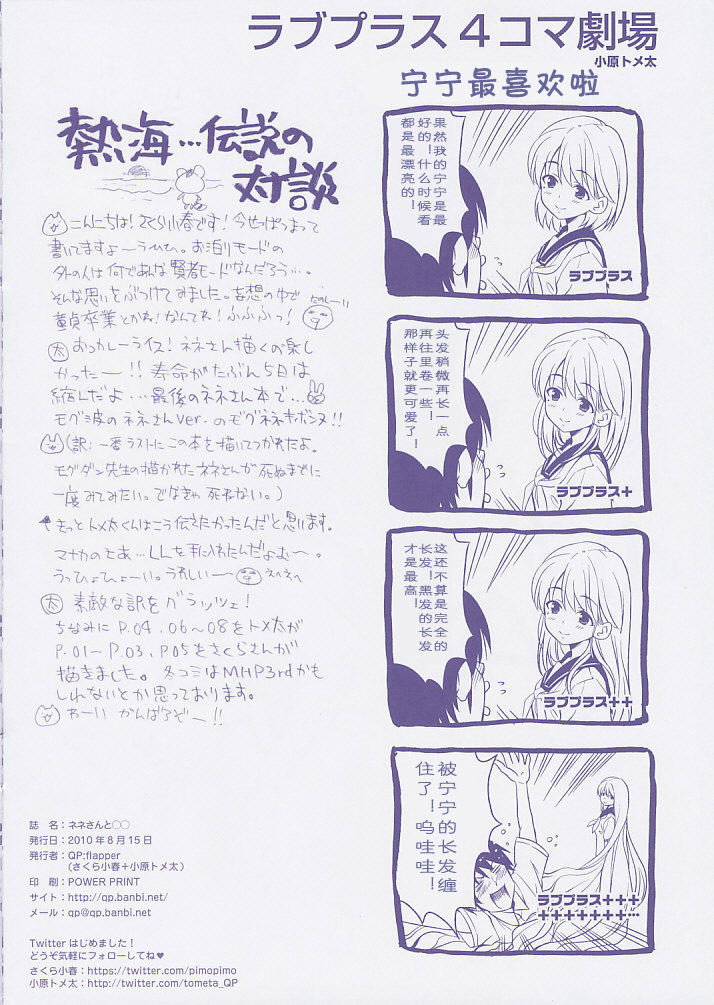 ラブプラス4コマ劇場
小原トメ太
宁宁最喜欢啦
果然我的宁宁是最
好的！什么时候看
都是最漂亮的！
ラブプラス
头发稍微再长一点
再往里卷一些！
那样子就更可爱了！
ラブプラス+
这还不算是完全的
长发！黑发的长发
才是最高！
ラブプラス++
被宁宁的长发缠
住了！呜哇哇！
ラブプラス+++
+++++++…
熱海…伝説の
対談
こんにちは！さくら小春です！今せっぱつまって
書いてますよーうひひ。お泊りモードの
外の人は何であんな賢者モードなんだろう…。
そんな思いをぶつけてみました。妄想の中で
童貞卒業とかね！なんてね！ふふふっ！
たのしーい
太 おっかレーライス！ネネさん描くの楽し
かったー！！寿命がたぶん5日は
縮んだよ…最後のネネさん本で…
モグミ波のネネさんver.のモグネネキボンヌ！！
（訳：一番ラストにこの本を描いてつかれたよ。
モグダン先生の描かれたネネさんが死ぬまでに
一度みてみたい。でなきゃ死ねない。）
きっとトメ太くんはこう伝えたかったんだと思います。
マナカのとあ…LLを手に入れたんだよむ〜。
うっひょひょーい。うれしいー
太 素敵な訳をグラッツェ！
ちなみにP.04,06〜08をトメ太が
P.01〜P.03,P05をさくらさんが
描きました。冬コミはMHP3rdかも
しれないとか思っております。
わーい がんばるぞー！！
誌 名：ネネさんと○○
発行日：2010年8月15日
発行者：QP:flapper
（さくら小春＋小原トメ太）
印 刷：POWER PRINT
サイト：http://qp.banbi.net/
メール：qp@qp.banbi.net
Twitterはじめました！
どうぞ気軽にフォローしてね♥
さくら小春：https://twitter.com/pimopimo
小原トメ太：http://twitter.com/tometa_QP